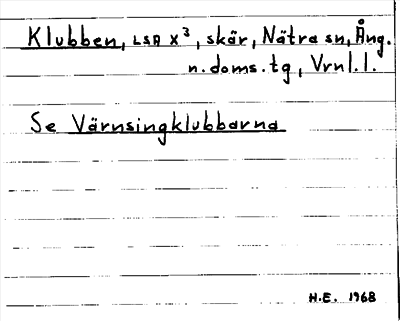 Klubben, LSA X³, skär, Nätra sn, Ång.
n. doms. tg, Vrnl. l.
Se Värnsingklubbarna
H.E. 1968